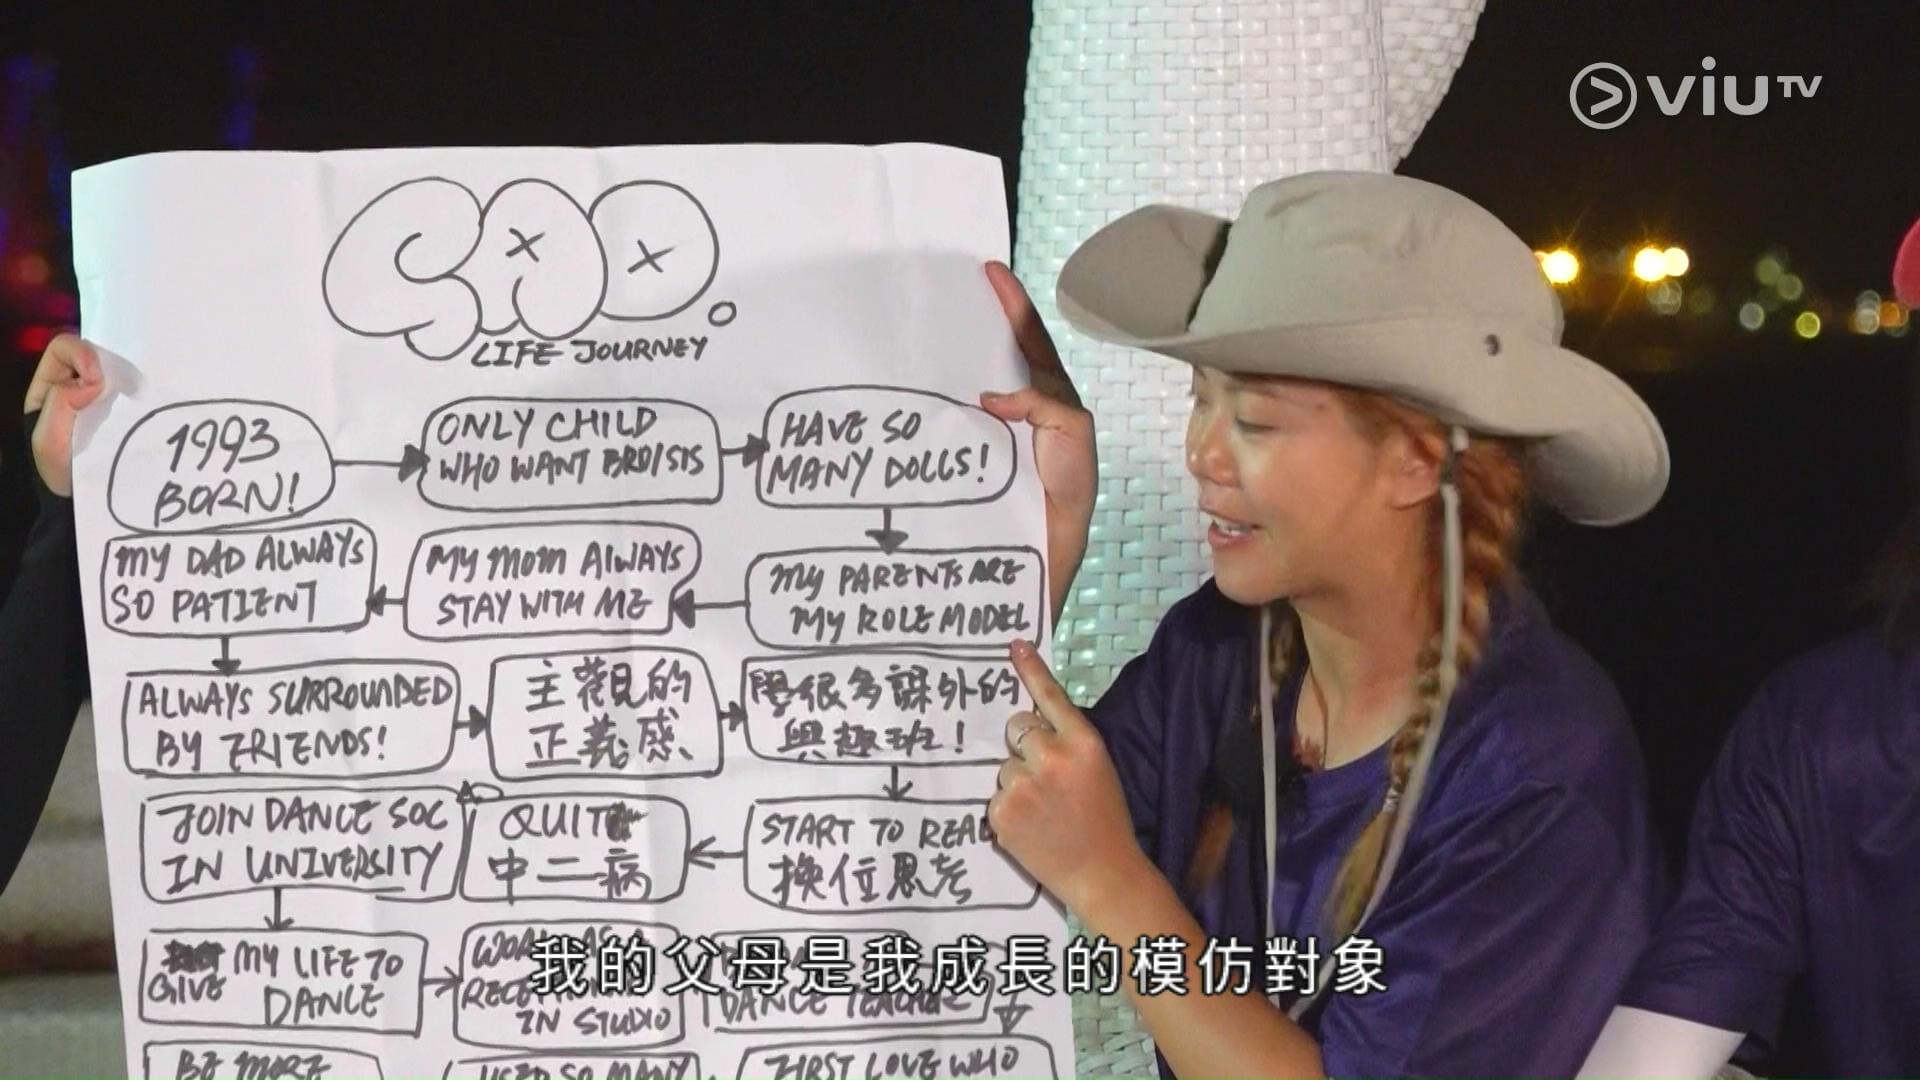 VIU TV
LIFE JOURNEY
1993
BORN!
ONLY CHILD
WHO WANT BRO/SIS
HAVE SO
MANY DOLLS!
MY PARENTS ARE
MY ROLE MODEL
MY MOM ALWAYS
STAY WITH ME
MY DAD ALWAYS
SO PATIENT
ALWAYS SURROUNDED
BY FRIENDS!
主觀的
正義感
學很多課外的
興趣班!
START TO READ
換位思考
QUIT
中二病
JOIN DANCE SOC
IN UNIVERSITY
GIVE MY LIFE TO
DANCE
IN STUDIO
DANCE TEACHER
BE MORE
USED SO MANY
FIRST LOVE WHO
我的父母是我成長的模仿對象